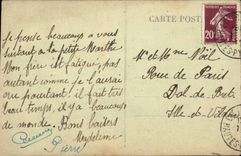 CARTE POST
Je pense beaucoup a vous
instants a la petite Marthe
Mon père est fatigué, pas
autant comme je l'aurai
cru pourtant il fait très
beau temps, il y a beaucoup
de monde. Bons baisers
Pierre
Mr et Mme Noël
Rue de Paris
Dol de Bret
Ille et Vilaine
20